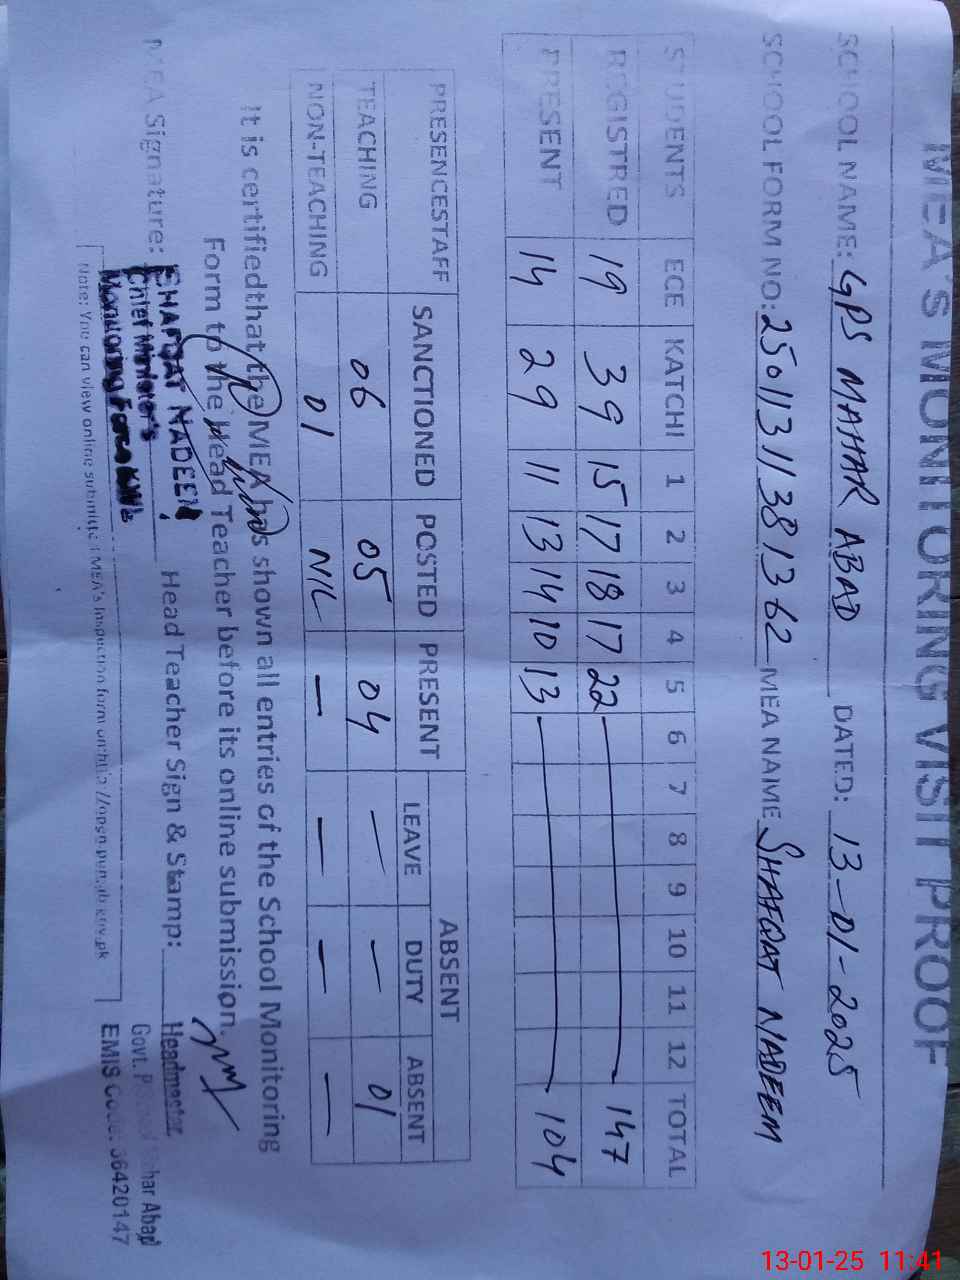 MEA'S MONITORING VISIT PROOF
SCHOOL NAME: GPS MAHAR ABAD DATED: 13-01-2025
SCHOOL FORM NO: 25011311381362 MEA NAME SHAFQAT NADEEM
STUDENTS ECE KATCHI 1 2 3 4 5 6 7 8 9 10 11 12 TOTAL
REGISTRED 19 39 15 17 18 17 22 147
PRESENT 14 29 11 13 14 10 13 104
PRESENCESTAFF SANCTIONED POSTED PRESENT ABSENT
LEAVE DUTY ABSENT
TEACHING 06 05 04 — — 01
NON-TEACHING 01 NIL — — — —
It is certifiedthat the MEA has shown all entries of the School Monitoring
Form to the Head Teacher before its online submission.
MEA Signature: SHAFQAT NADEEM Head Teacher Sign & Stamp: Headmaster
Chief Minister's
Monitoring Force KWL
Govt. Mahar Abad
EMIS Code: 36420147
Note: You can view online submitted MEA's Inspection form on http://open.punjab.gov.pk
13-01-25 11:41